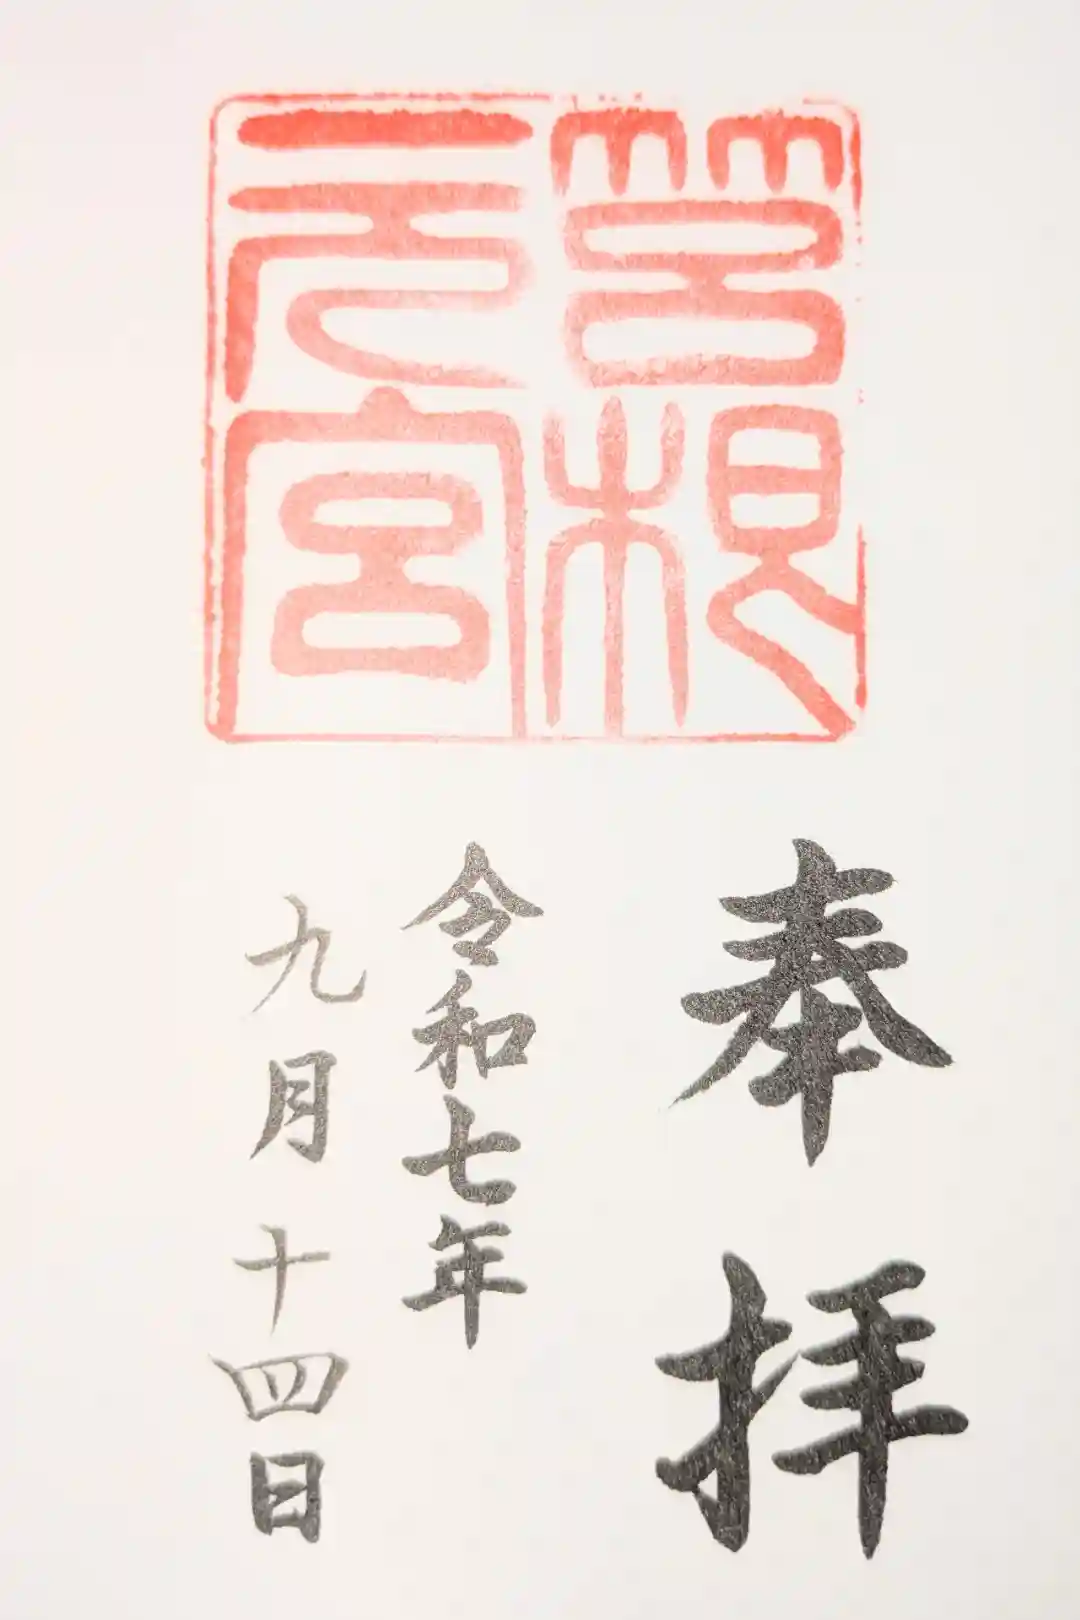 筥根
元宮
奉拝
令和七年
九月十四日